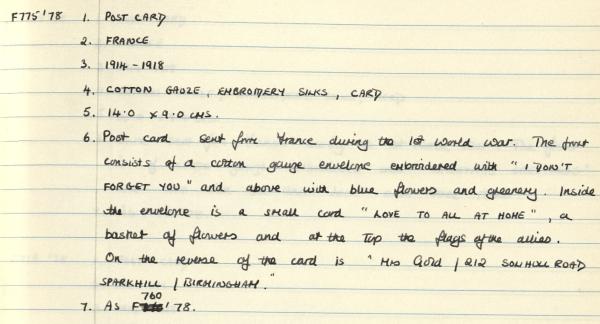 F775'78 1. POST CARD
2. FRANCE
3. 1914-1918
4. COTTON GAUZE, EMBROIDERY SILKS, CARD
5. 14.0 x 9.0 CMS.
6. Post card sent from France during the 1st World War. The front
consists of a cotton gauge envelope embroidered with "I DON'T
FORGET YOU" and above with blue flowers and greenery. Inside
the envelope is a small card "LOVE TO ALL AT HOME", a
basket of flowers and at the top the flags of the allies.
On the reverse of the card is "Mrs Gold / 212 SOLIHULL ROAD
SPARKHILL / BIRMINGHAM."
760
7. AS F '78.